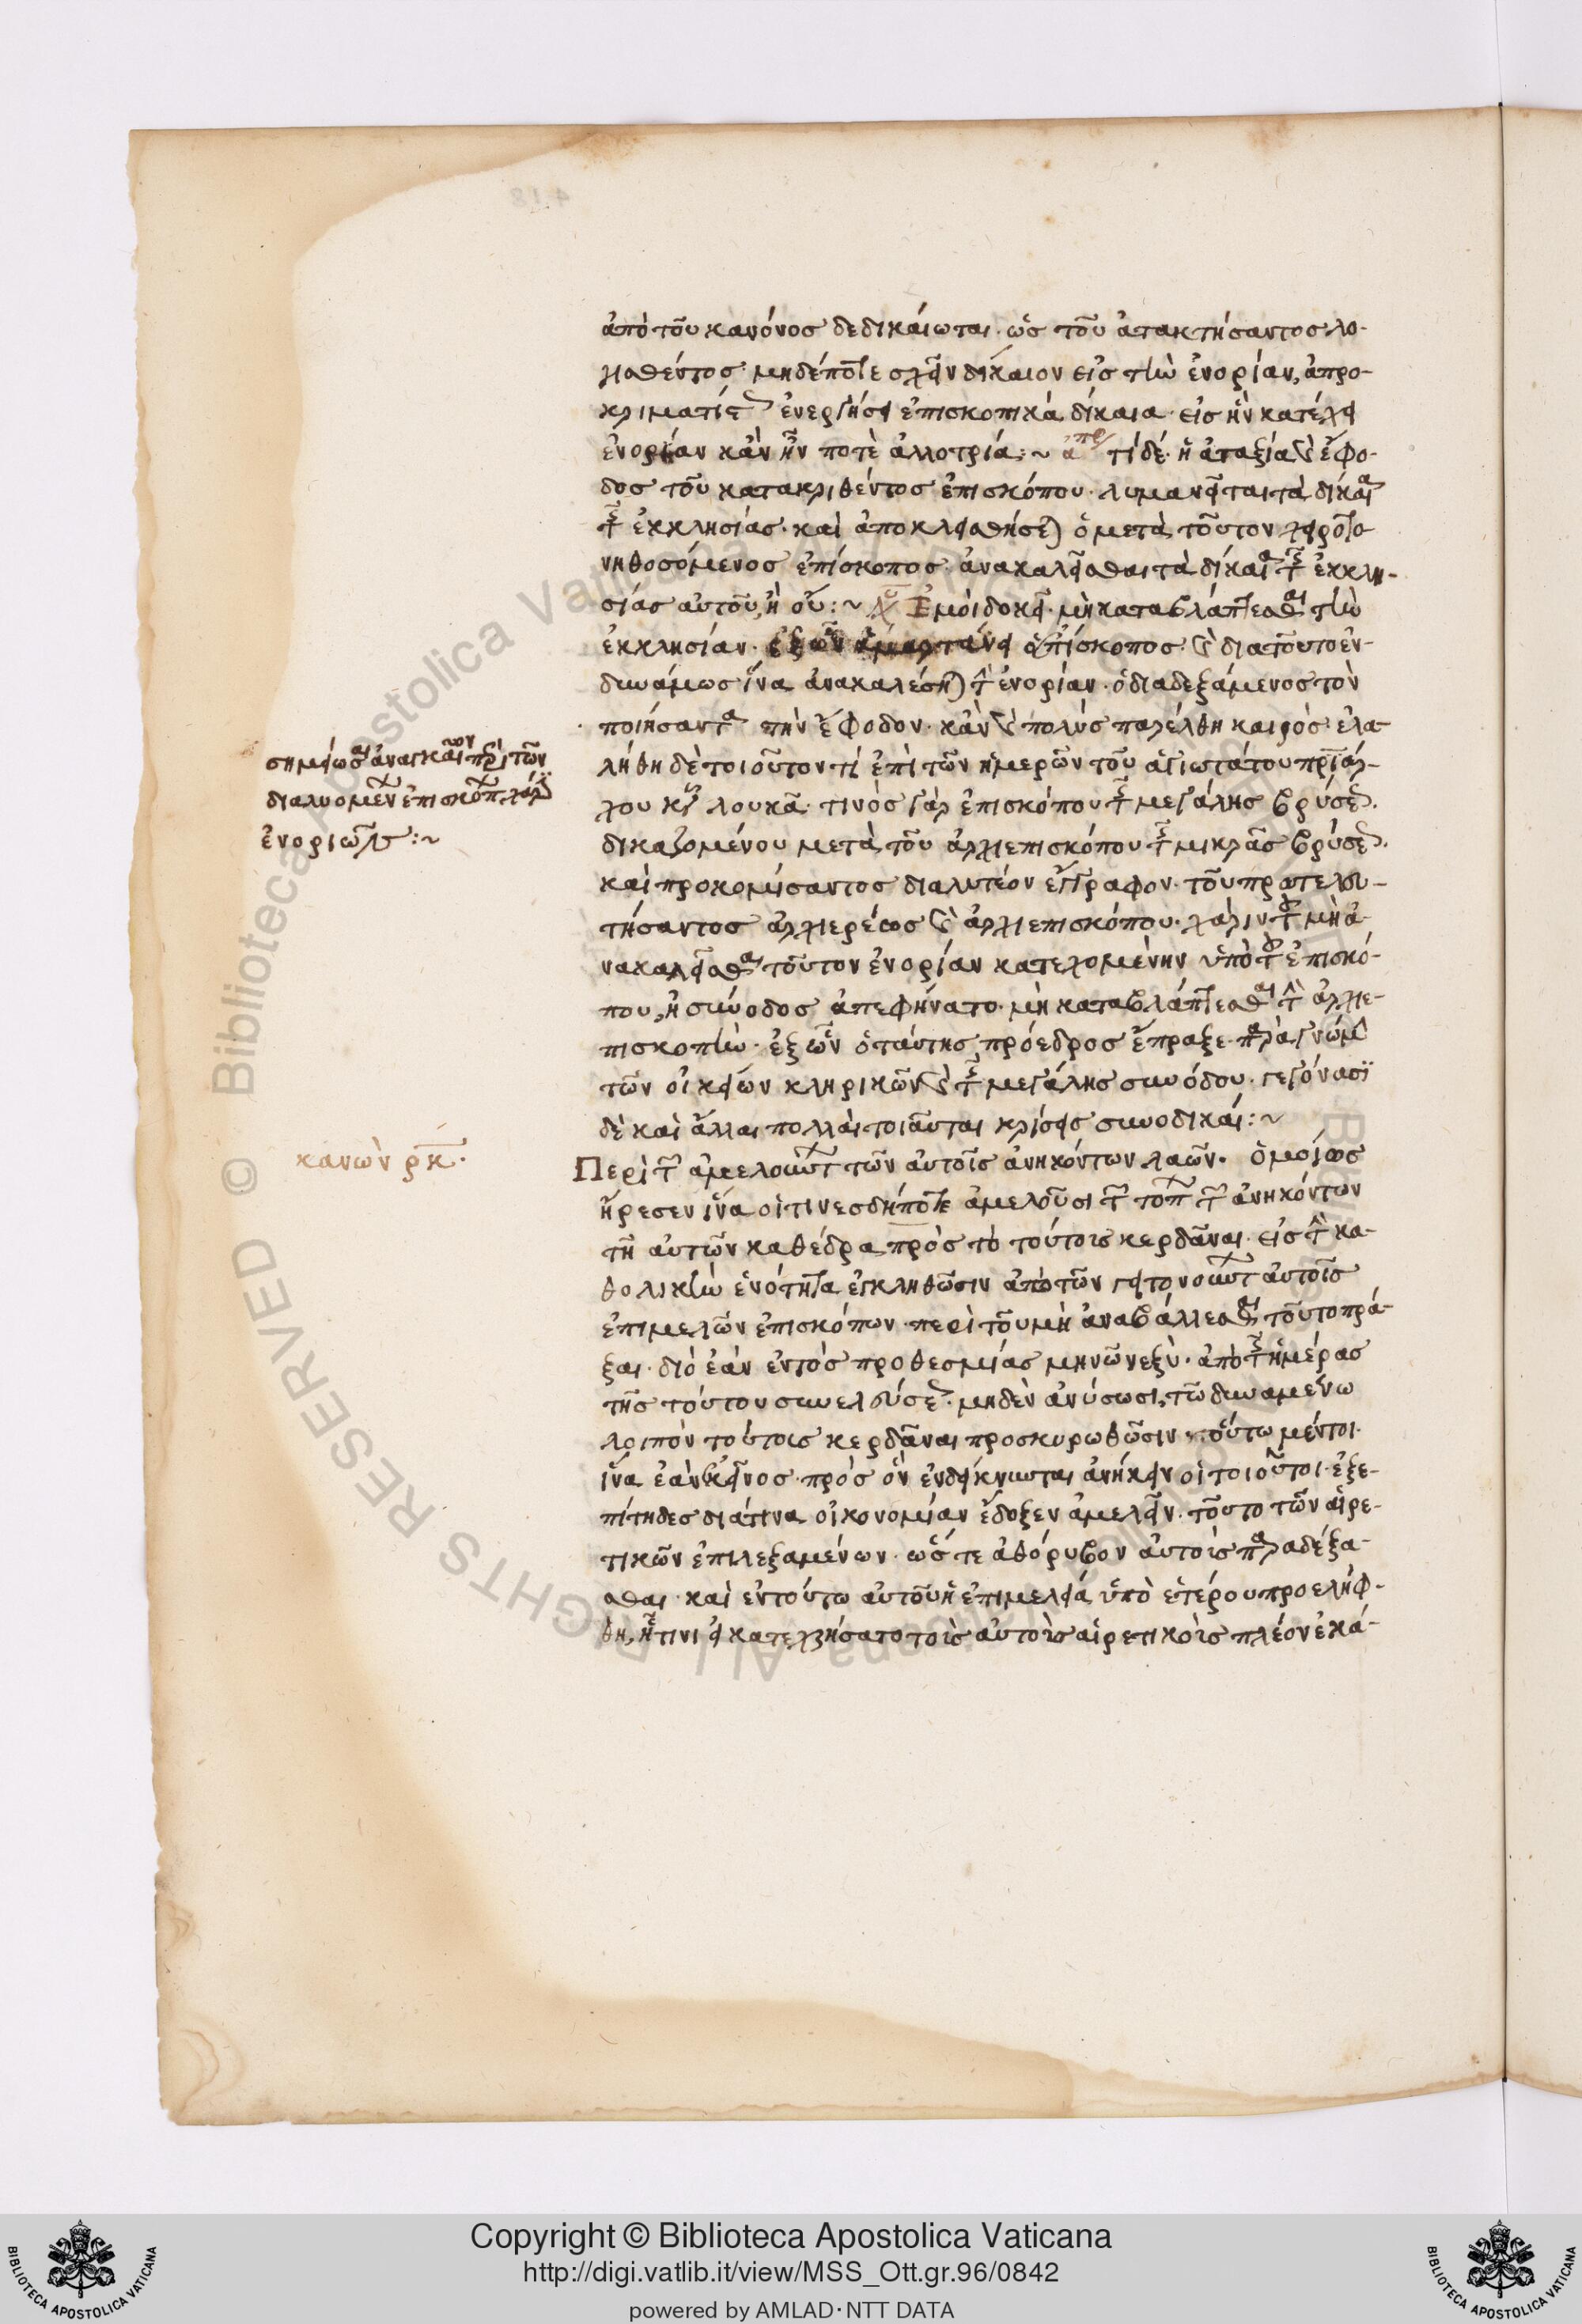 ἀπὸ τοῦ κανόνος δεδικαίωται· ὡς τοῦ ἀτακτήσαντος λο-
μηδέποτε σχεῖν δίκαιον εἰς τὴν ἐνορίαν, ἀπρο-
κριματίστως ἐνεργήσει ἐπισκοπικὰ δίκαια· εἰς ἣν κατέχει
ἐνορίαν κἂν ἦν ποτὲ ἀλλοτρία:~ ἀπορία τί δέ· ἡ ἀταξία καὶ ἔφο-
δος τοῦ κατακριθέντος ἐπισκόπου· λυμανεῖται τὰ δίκαια
τῆς ἐκκλησίας· καὶ ἀποκλεισθήσεται ὁ μετὰ τοῦτον χειροτο-
νηθοσόμενος ἐπίσκοπος· ἀνακαλεῖσθαι τὰ δίκαια τῆς ἐκκλη-
σίας αὐτοῦ, ἢ οὔ:~ Ἐμοὶ δοκεῖ· μὴ καταβλάπτεσθαι τὴν
ἐκκλησίαν· ἐξ ὧν ἁμαρτάνει ὁ ἐπίσκοπος· καὶ διατοῦτο ἐν-
δυνάμως ἵνα ἀνακαλέσηται τὴν ἐνορίαν· ὁ διαδεξάμενος τὸν
ποιήσαντα τὴν ἔφοδον· κἂν καὶ πολὺς παρέλθη καιρός· ἐλα-
λήθη δὲ τοιοῦτον τί ἐπὶ τῶν ἡμερῶν τοῦ ἁγιωτάτου πριάρ-
χου κυροῦ λουκᾶ· τινὸς γὰρ ἐπισκόπου τῆς μεγάλης βρύσεως·
δικαζομένου μετὰ τοῦ ἀρχιεπισκόπου τῆς μικρᾶς βρύσεως·
καὶ προκομίσαντος διαλυτέον ἔγγραφον· τοῦ προτελευ-
τήσαντος ἀρχιερέως καὶ ἀρχιεπισκόπου· χάριν τοῦ μὴ ἀ-
νακαλεῖσθαι τοῦτον ἐνορίαν κατεχομένην ὑπὸ τοῦ ἐπισκό-
που, ἡ σύνοδος ἀπεφήνατο· μὴ καταβλάπτεσθαι τὴν ἀρχιε-
πισκοπὴν· ἐξ ὧν ὁ ταύτης πρόεδρος ἔπραξε· παρὰ γνώμην
τῶν οἰκείων κληρικῶν καὶ τῆς μεγάλης συνόδου· γεγόνασι
δὲ καὶ ἄλλαι πολλαὶ τοιαῦται κρίσεις συνοδικαί:~
Περὶ τῶν ἀμελούντων τῶν αὐτοῖς ἀνηκόντων λαῶν· ὁμοίως
ἤρεσεν ἵνα οἵτινες δήποτε ἀμελοῦσι τῶν τόπων τῶν ἀνηκόντων
τῇ αὐτῶν καθέδρα πρὸς τὸ τούτοις κερδᾶναι· εἰς τὴν κα-
θολικὴν ἑνότητα ἐγκληθῶσιν ἀπὸ τῶν γειτονούντων αὐτοῖς
ἐπιμελῶν ἐπισκόπων· περὶ τοῦ μὴ ἀναβάλλεσθαι τοῦτο πρά-
ξαι· διὸ ἐὰν ἐντὸς προθεσμίας μηνῶν ἐξὺ· ἀπὸ τῆς ἡμέρας
τῆς τούτου συνελεύσεως· μηδὲν ἀνύσωσι, τῶ δυναμένω
λοιπὸν τούτοις κερδᾶναι προσκυρωθῶσιν· οὕτω μέντοι
ἵνα ἐὰν ἐκεῖνος· πρὸς ὃν ἐνδείκνυται ἀνήκειν οἱ τοιοῦτοι· ἐξε-
πίτηδες διά τινα οἰκονομίαν ἔδοξεν ἀμελεῖν· τοῦτο τῶν αἱρε-
τικῶν ἐπιλεξαμένων· ὥστε ἀθόρυβον αὐτοὺς παραδέξα-
σθαι· καὶ ἐν τούτω αὐτοῦ ἡ ἐπιμελεία ὑπὸ ἑτέρου προελήφ-
θη, ᾗτινι κατεχρήσατο τοῖς αὐτοῖς αἱρετικοῖς πλέον ἐκά-
σημείωσαι ἀναγκαῖον περὶ τῶν
διαλυομένων ἐπισκόπων χάριν
ἐνοριῶν:~
κανὼν ρκ·
Copyright © Biblioteca Apostolica Vaticana
http://digi.vatlib.it/view/MSS_Ott.gr.96/0842
powered by AMLAD·NTT DATA
BIBLIOTECA APOSTOLICA VATICANA
BIBLIOTECA APOSTOLICA VATICANA